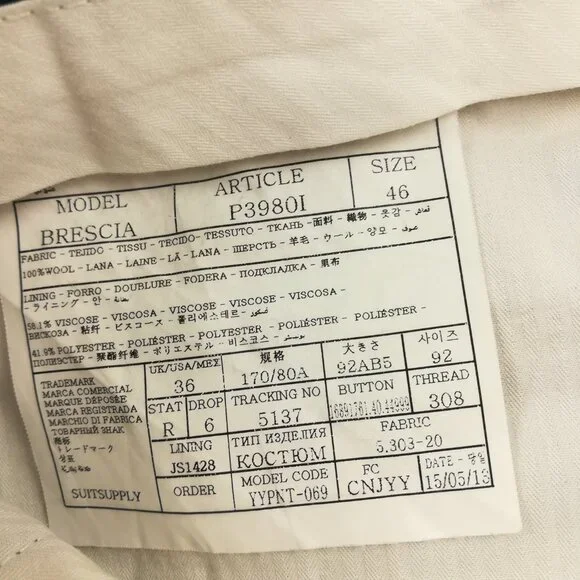 MODEL
BRESCIA
ARTICLE
P3980I
SIZE
46
FABRIC - TEJIDO - TISSU - TECIDO - TESSUTO - ТКАНЬ - 面料 - 織物 - 옷감 - قماش
100%WOOL - LANA - LAINE - LÃ - LANA - ШЕРСТЬ - 羊毛 - ウール - 양모 -
LINING - FORRO - DOUBLURE - FODERA - ПОДКЛАДКА - 里布
- ライニング - 안 - بطانة
58.1% VISCOSE - VISCOSA - VISCOSE - VISCOSE - VISCOSA -
ВИСКОЗА - 粘纤 - ビスコース -
41.9% POLYESTER - POLYESTER - POLYESTER - POLIÉSTER - POLIESTER -
ПОЛИЭСТЕР - 聚酯纤维 - ポリエステル -
TRADEMARK
MARCA COMERCIAL
MARQUE DÉPOSÉE
MARCA REGISTRADA
MARCHIO DI FABRICA
ТОВАРНЫЙ ЗНАК
商标
トレードマーク
상표
SUITSUPPLY
UK/USA/MEX
36
規格
170/80A
大きさ
92AB5
사이즈
92
STAT
R
DROP
6
TRACKING NO
5137
BUTTON
THREAD
308
LINING
JS1428
ТИП ИЗДЕЛИЯ
КОСТЮМ
FABRIC
5.303-20
ORDER
MODEL CODE
YYPNT-069
FC
CNJYY
DATE -
15/05/13